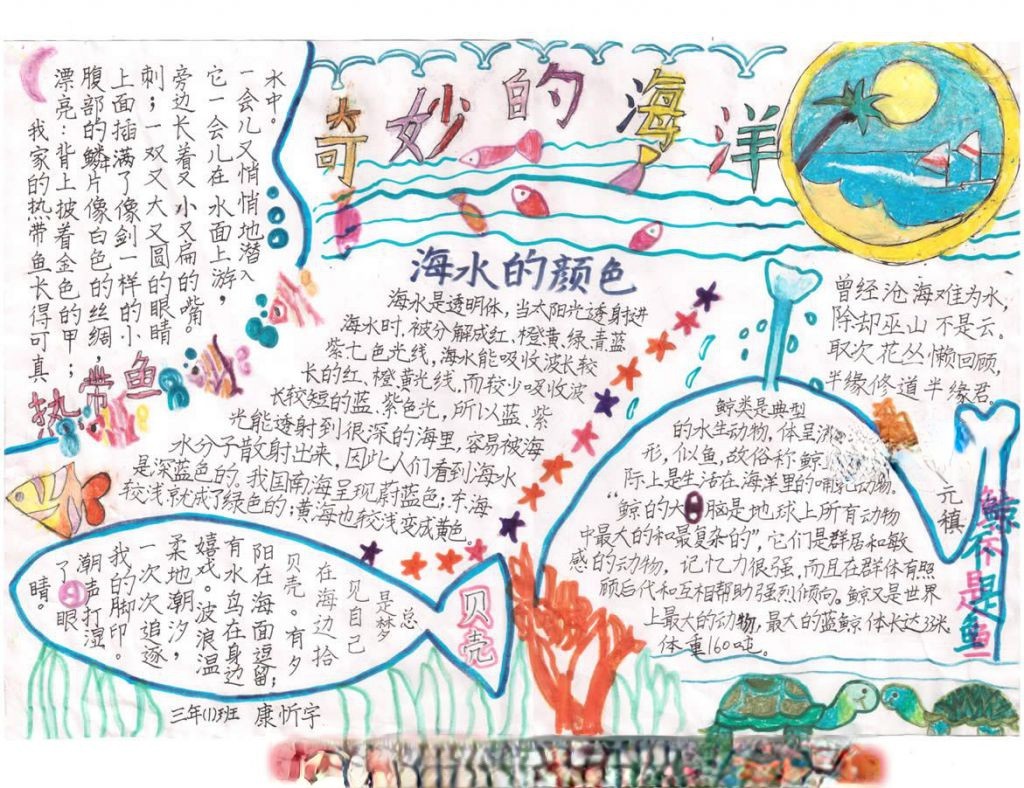 奇妙的海洋
我家的热带鱼长得可真
漂亮：背上披着金色的甲；
腹部的鳞片像白色的丝绸；
上面插满了像剑一样的小
刺；一双又大又圆的眼睛
旁边长着又小又扁的嘴。
它一会儿在水面上游，
一会儿又悄悄地潜入
水中。
热带鱼
海水的颜色
海水是透明体，当太阳光透射进
海水时，被分解成红、橙黄、绿、青蓝
紫七色光线，海水能吸收波长较
长的红、橙黄光线，而较少吸收波
长较短的蓝、紫色光，所以蓝、紫
光能透射到很深的海里，容易被海
水分子散射出来，因此人们看到海水
是深蓝色的。我国南海呈现蔚蓝色；东海
较浅就成了绿色的；黄海也较浅变成黄色。
曾经沧海难为水，
除却巫山不是云。
取次花丛懒回顾，
半缘修道半缘君。
元稹
鲸类是典型
的水生动物，体呈
形，似鱼，故俗称鲸
际上是生活在海洋里的哺乳动物。
“鲸的大脑是地球上所有动物
中最大的和最复杂的”，它们是群居和敏
感的动物，记忆力很强，而且在群体有照
顾后代和互相帮助强烈倾向。鲸又是世界
上最大的动物，最大的蓝鲸体长达33米
体重160吨。
鲸不是鱼
贝壳
总
是梦
见自己
在海边拾
贝壳。有夕
阳在海面逗留；
有水鸟在身边
嬉戏。波浪温
柔地潮汐，
一次次追逐
我的脚印。
潮声打湿
了眼
睛。
三年(1)班 康忻宇